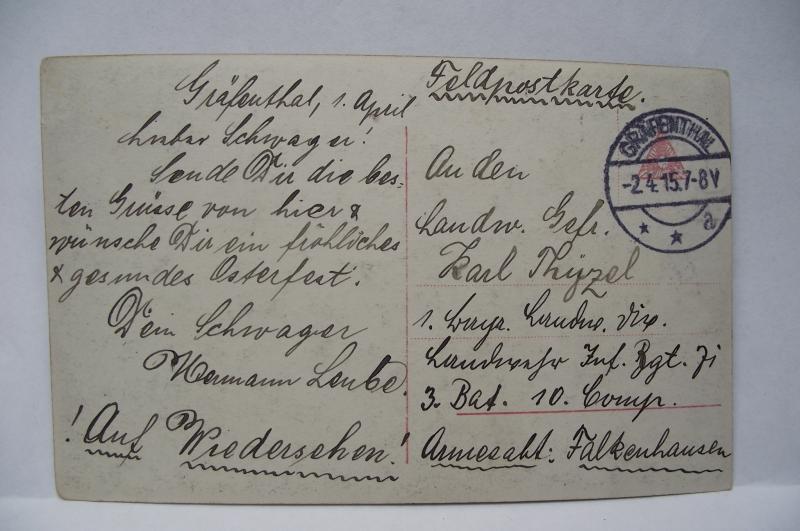 Gräfenthal, 1. April
Lieber Schwager!
Sende Dir die bes-
ten Grüsse von hier &
wünsche Dir ein fröhliches
& gesundes Osterfest.
Dein Schwager
Hermann Leube.
! Auf Wiedersehen!
Feldpostkarte.
GRÄFENTHAL
-2.4.15.7-8V
* * a
An den
Landw. Gefr.
Karl Thyzel
1. bayr. Landw. Div.
Landwehr Inf. Rgt. 71
3. Bat. 10. Comp.
Armeeabt: Falkenhausen